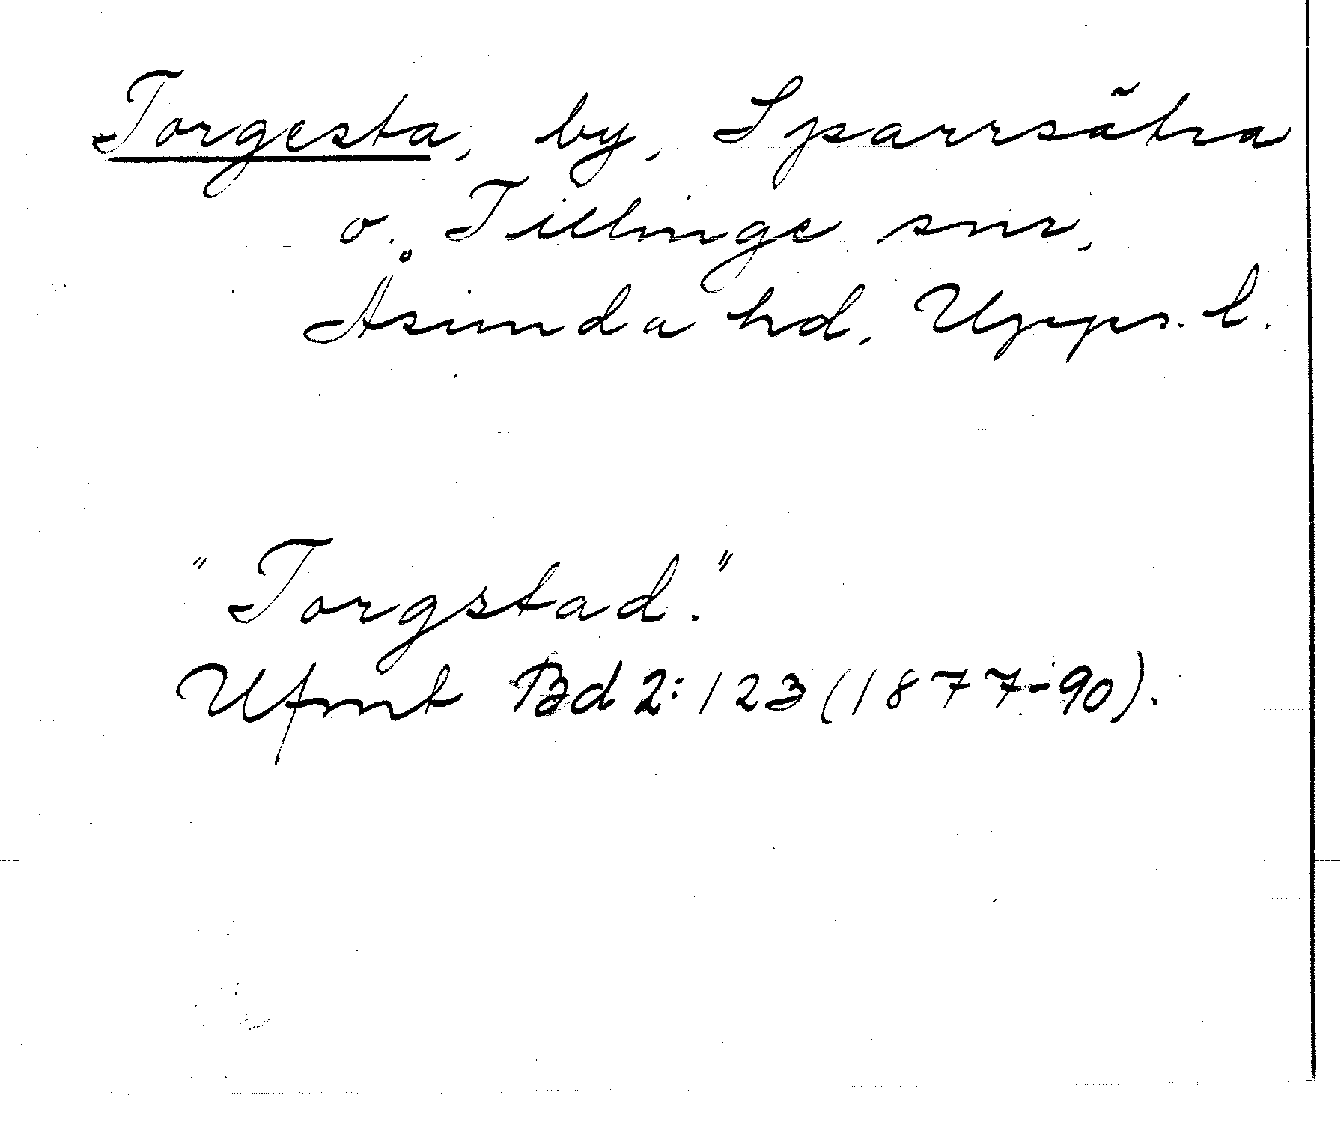 Torgesta, by, Sparrsätra
o. Tillinge snr,
Åsunda hd, Upps. l.
"Torgstad."
Ufmt Bd 2:123(1877-90).